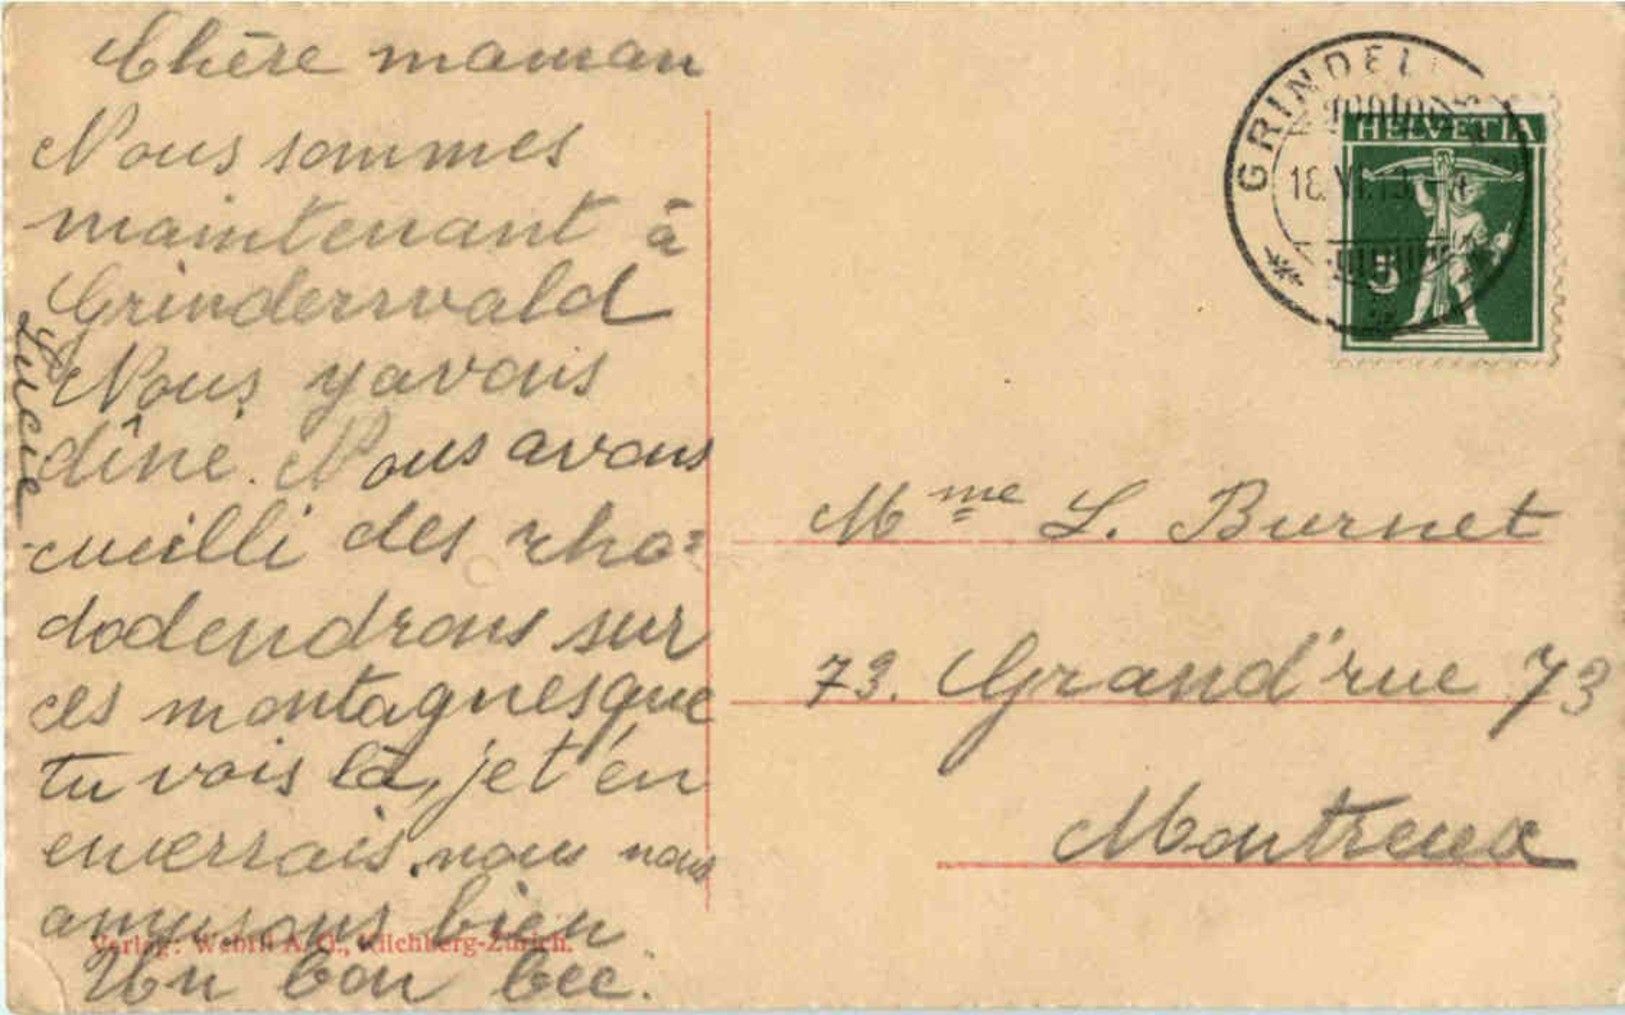 Chère maman
Nous sommes
maintenant à
Grindersvald
Nous y avons
dîné. Nous avons
cueilli des rho=
dodendrons sur
ces montagnes que
tu vois là, je t'en
enverrais. nous nous
amusons bien
Un bon bec.
Lucie
Verlag: Wehrli A. G., Kilchberg-Zürich.
GRINDEL
18. VI. 13
HELVETIA
5
Mme L. Burnet
73. Grand'rue 73
Montreux